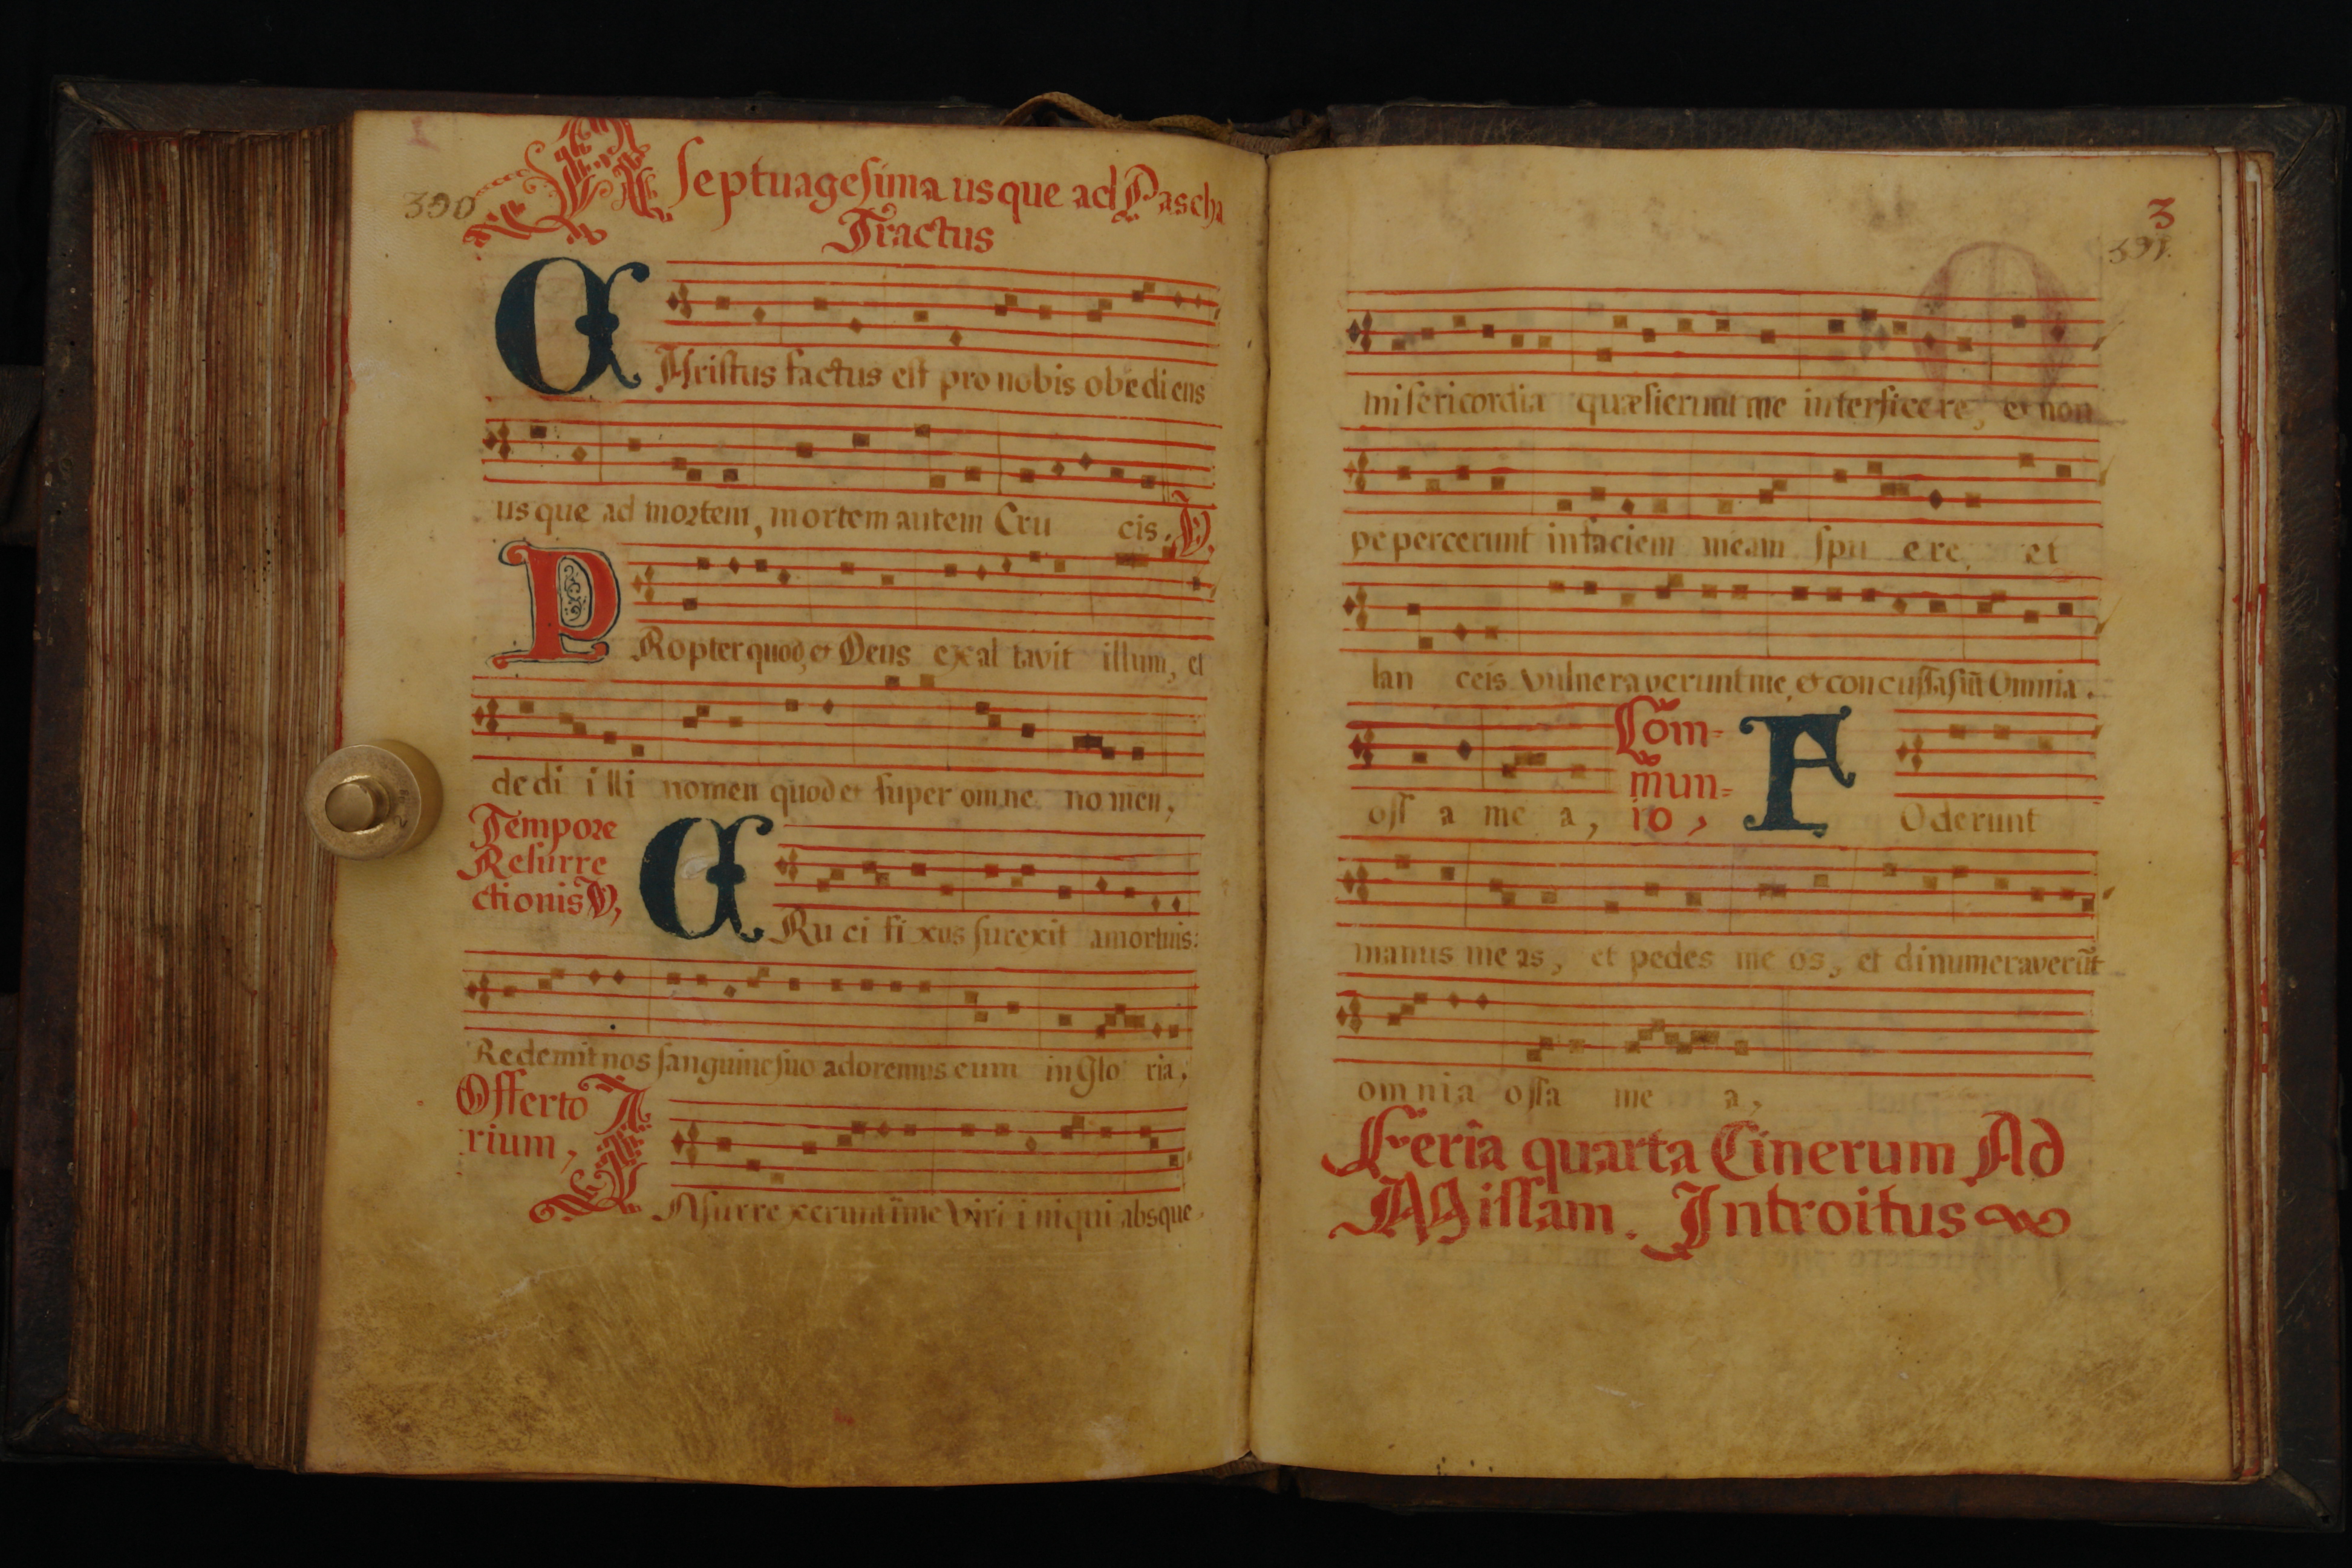 390
A Septuagesima usque ad Pascha
Tractus
CHristus factus est pro nobis obediens
usque ad mortem, mortem autem Cru cis. V,
PRopter quod, et Deus exal tavit illum, et
dedi illi nomen quod et super omne nomen,
Tempore
Resurre
ctionis V,
CRu ci fi xus surexit amortuis:
Redemit nos sanguine suo adoremus eum in Glo ria,
Offerto
rium,
INsurre xerunt ĩme Viri iniqui absque
3
391.
misericordia quæsierunt me interficere, et non
pepercerunt infaciem meam spu ere, et
lan ceis vulneraverunt me, et concussa sũt Omnia.
oss a me a,
Cõm-
mun-
io,
FOderunt
manus meas, et pedes me os, et dinumeraverũt
omnia ossa me a,
Feria quarta Cinerum Ad
Missam. Introitus